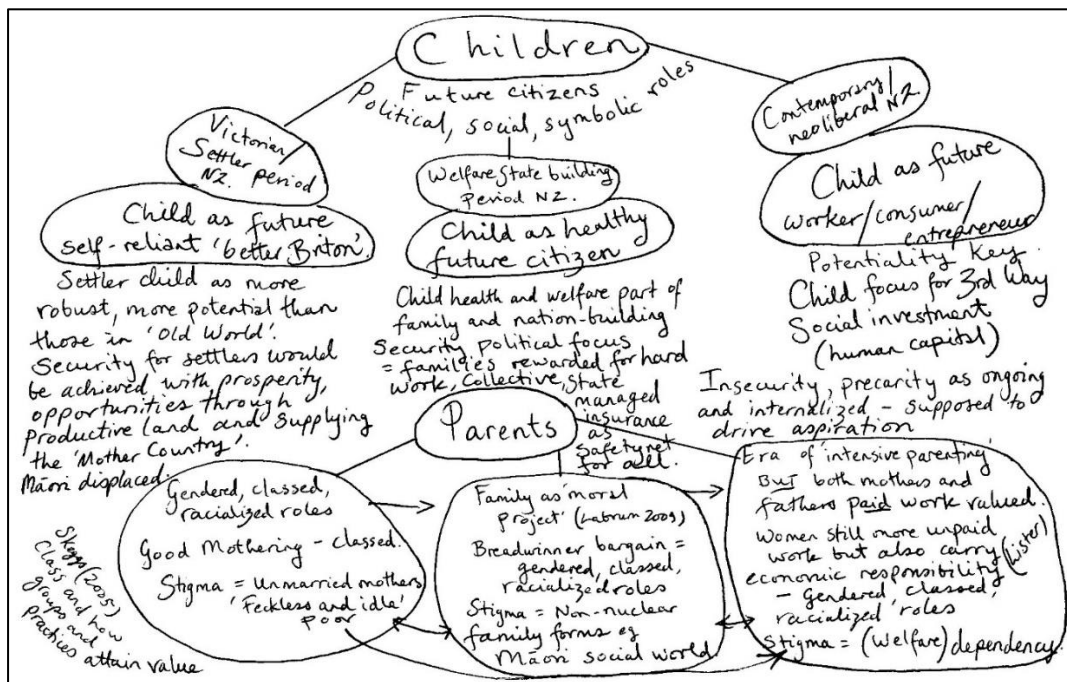 Children
Future citizens
Political, social, symbolic roles
Victorian/
Settler period
NZ.
Child as future
self-reliant 'better Briton'.
Settler child as more
robust, more potential than
those in 'Old World'.
Security for settlers would
be achieved with prosperity,
opportunities through
productive land and supplying
the 'Mother Country'.
Māori displaced.
Welfare State building
period NZ.
Child as healthy
future citizen
Child health and welfare part of
family and nation-building
Security political focus
= families rewarded for hard
work, Collective, State
managed
insurance
as
safety net
for all.
Contemporary/
neoliberal NZ
Child as future
worker/consumer/
entrepreneur
Potentiality key.
Child focus for 3rd Way
Social investment
(human capital)
Insecurity, precarity as ongoing
and internalized - supposed to
drive aspiration
Parents
Gendered, classed,
racialized roles
Good Mothering - classed.
Stigma = Unmarried mothers
'Feckless and idle'
poor
Skeggs (2005)
Class and how
groups and
practices attain value
Family as 'moral
project' (Labrum 2009)
Breadwinner bargain =
gendered, classed,
racialized roles
Stigma = Non-nuclear
family forms eg
Māori social world.
Era of 'intensive parenting'
BUT both mothers and
fathers paid work valued.
Women still more unpaid
work but also carry
economic responsibility (Lister)
- Gendered, classed,
racialized roles
Stigma = (Welfare) dependency.